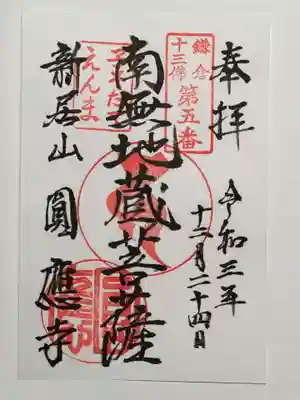 奉拝
令和三年
十二月二十四日
鎌倉
十三佛
第五番
南無地蔵菩薩
子そだて
えんま
新居山 圓應寺